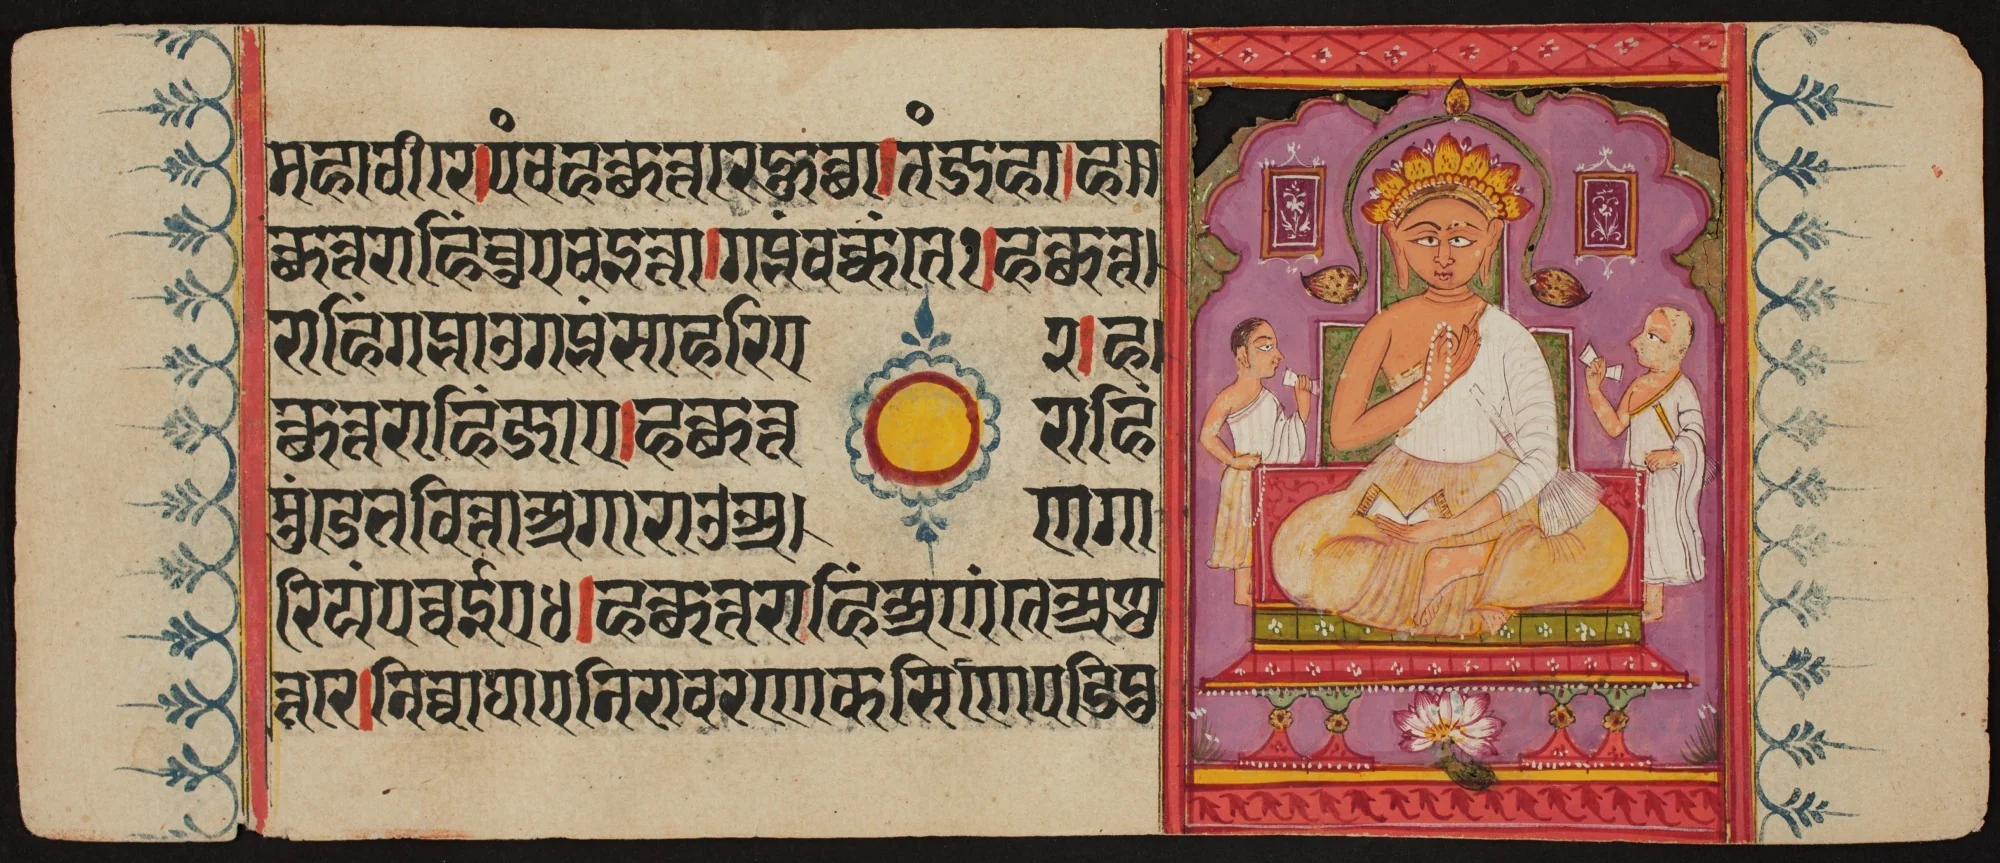 महावीरे।पंचहत्थुत्तरेहुत्था।तंजहा।ह
त्थुत्तराहिंचुएचइत्ता।गब्भंवक्कंते१।हत्थुत्त
राहिंगब्भाउगब्भंसाहरिए २।ह
त्थुत्तराहिंजाए।हत्थुत्त राहिं
मुंडेभवित्ताअगाराउअ णगा
रियंपव्वईए४।हत्थुत्तराहिंअणंतेअणु
त्तरे।निव्वाघाएनिरावरणेकसिणेपडिपु